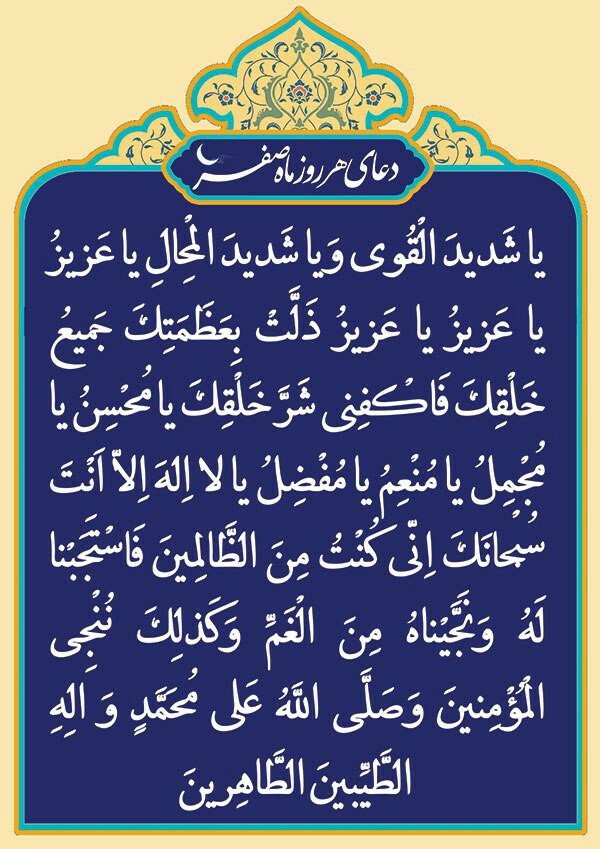 دعای هر روز ماه صفر
یا شَدیدَ الْقُوی وَیا شَدیدَ الْمِحالِ یا عَزیزُ
یا عَزیزُ یا عَزیزُ ذَلَّتْ بِعَظَمَتِكَ جَمیعُ
خَلْقِكَ فَاكْفِنی شَرَّ خَلْقِكَ یا مُحْسِنُ یا
مُجْمِلُ یا مُنْعِمُ یا مُفْضِلُ یا لا اِلهَ اِلاّ اَنْتَ
سُبْحانَكَ اِنّی كُنْتُ مِنَ الظّالِمینَ فَاسْتَجَبْنا
لَهُ وَنَجَّیْناهُ مِنَ الْغَمِّ وَكَذلِكَ نُنْجِی
الْمُؤْمِنینَ وَصَلَّی اللَّهُ عَلی مُحَمَّدٍ وَ الِهِ
الطَّیِّبینَ الطَّاهِرینَ